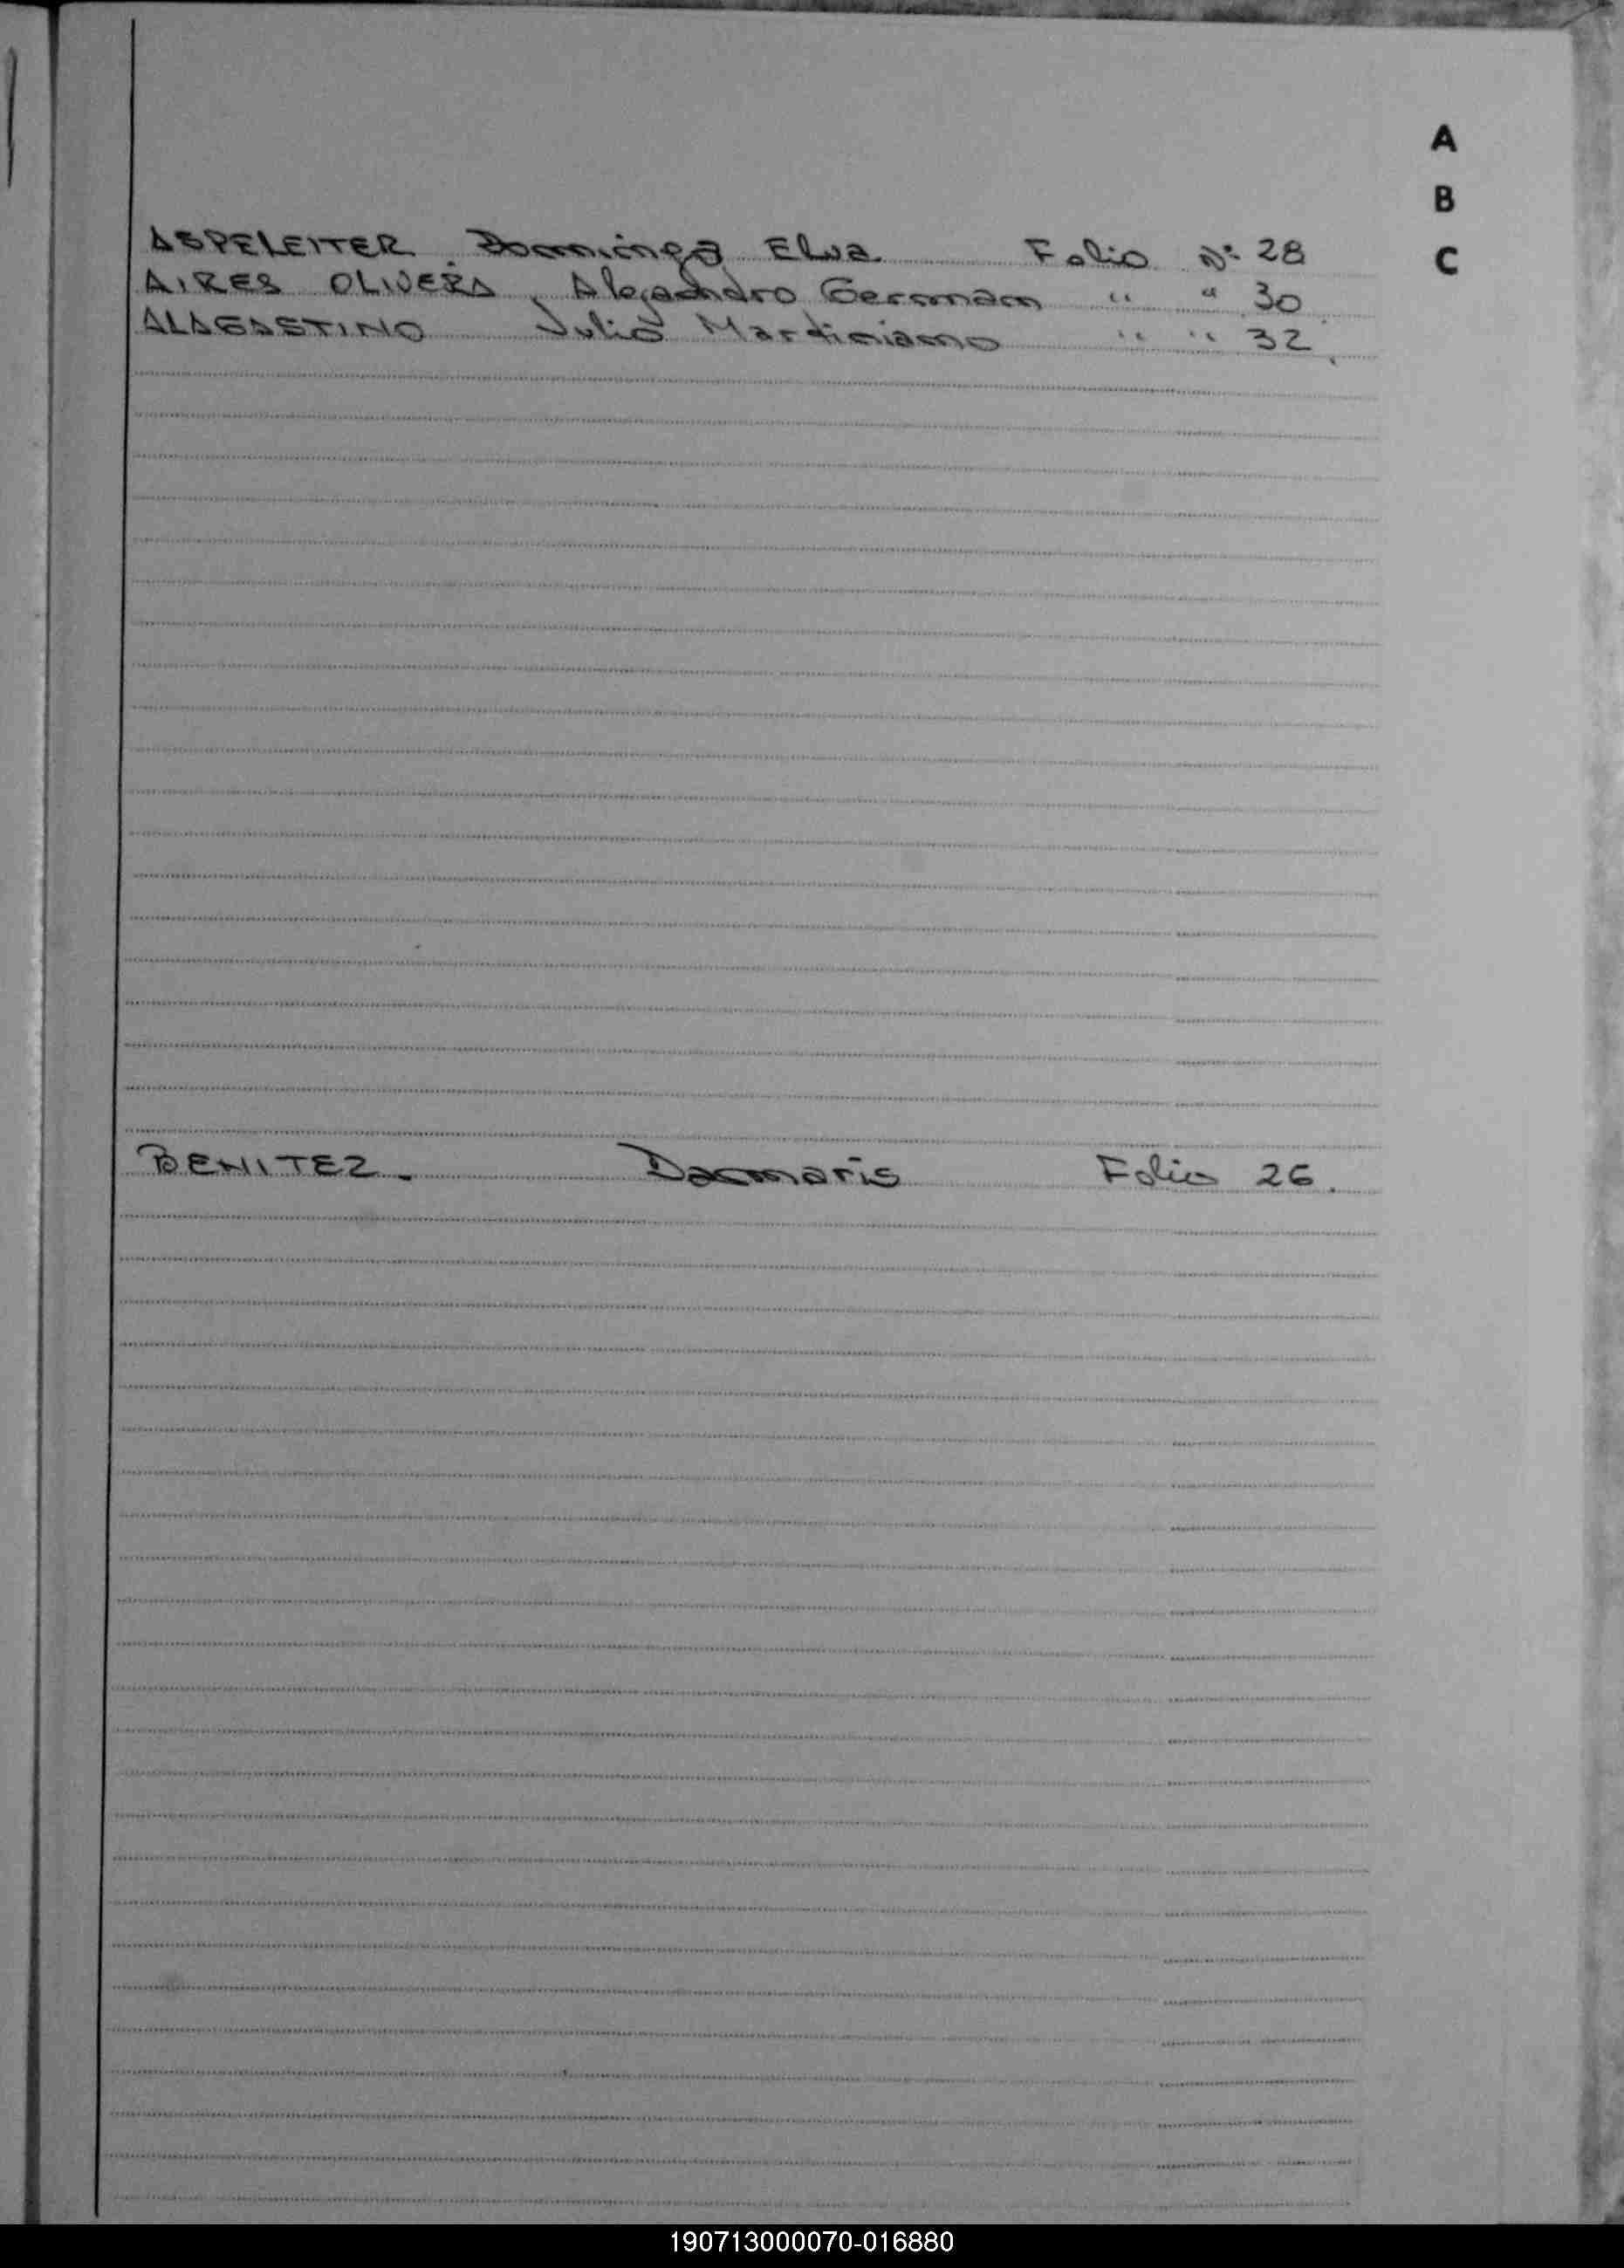 A
B
C
ASPELEITER. Dominga Elva Folio Nº 28
AIRES OLIVERA, Alejandro Germman " " 30
ALAGASTINO Julio Martiniano " " 32.
BENITEZ. Dacmaris Folio 26.
190713000070-016880